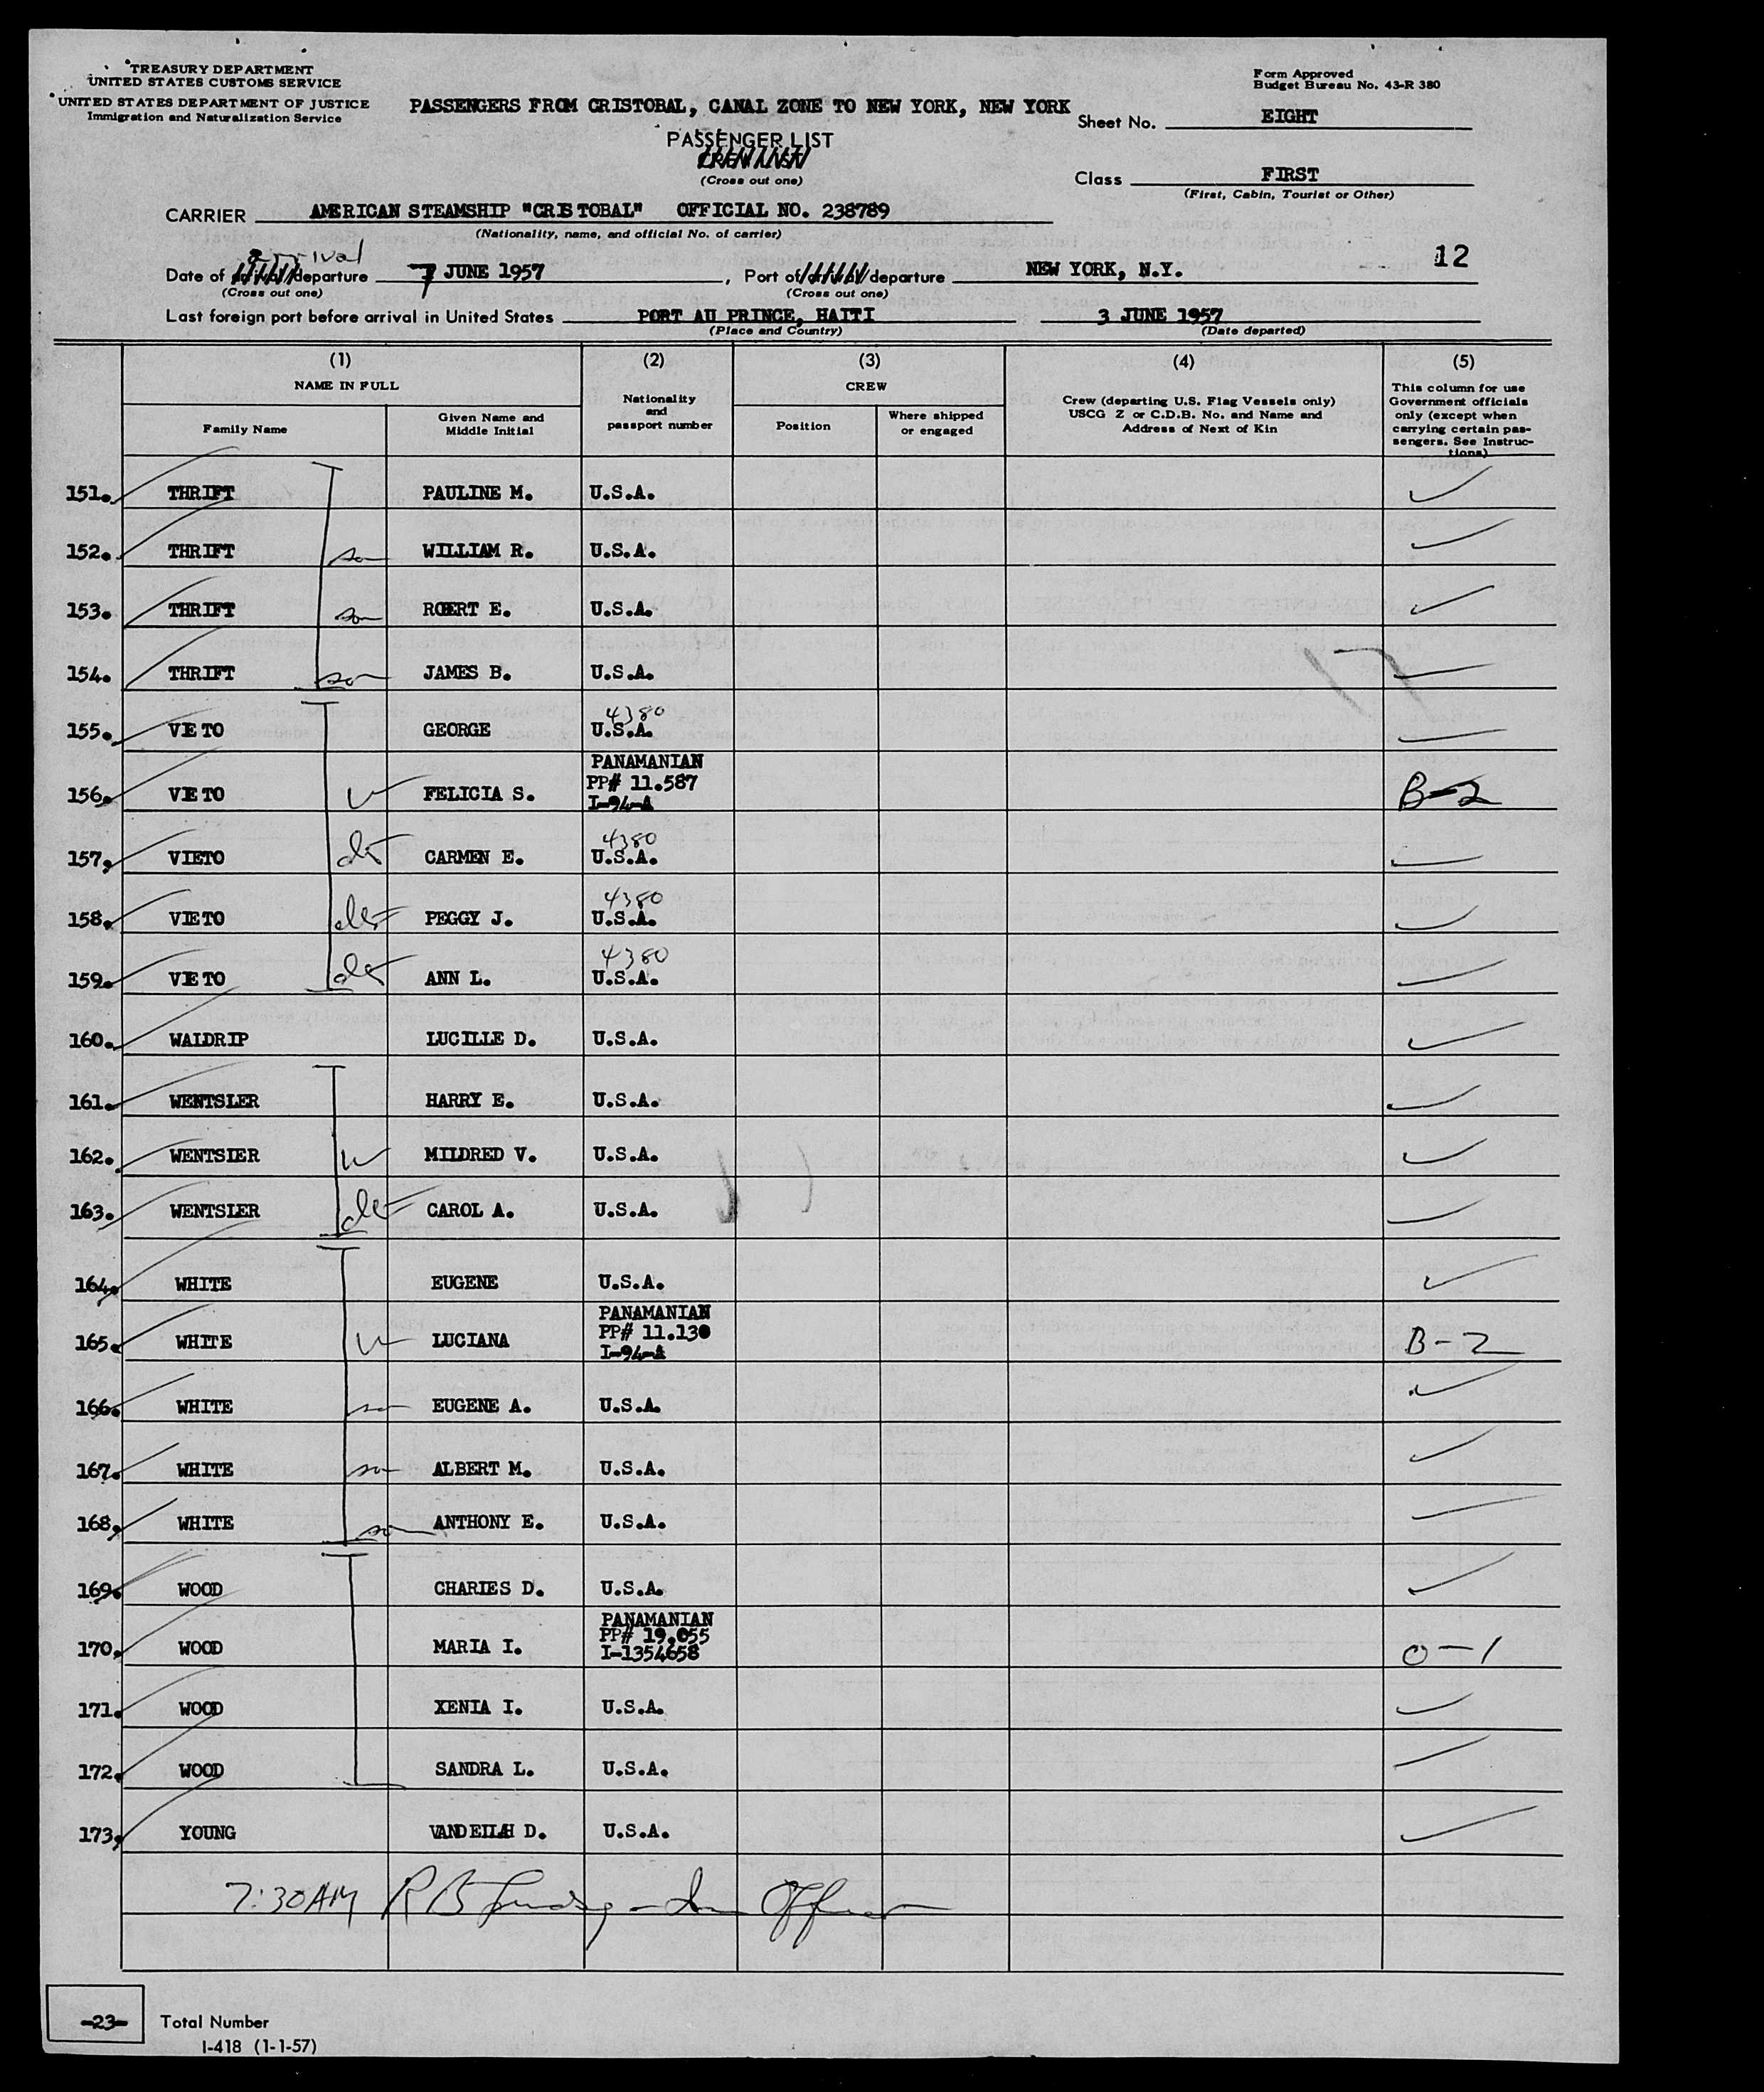 TREASURY DEPARTMENT
UNITED STATES CUSTOMS SERVICE
UNITED STATES DEPARTMENT OF JUSTICE
Immigration and Naturalization Service
Form Approved
Budget Bureau No. 43-R 380
PASSENGERS FROM CRISTOBAL, CANAL ZONE TO NEW YORK, NEW YORK
Sheet No. EIGHT
PASSENGER LIST
CREW LIST
(Cross out one)
Class FIRST
(First, Cabin, Tourist or Other)
CARRIER AMERICAN STEAMSHIP "CRISTOBAL" OFFICIAL NO. 238789
(Nationality, name, and official No. of carrier)
arrival
12
Date of arrival/departure 7 JUNE 1957, Port of/arrival/departure NEW YORK, N.Y.
(Cross out one) (Cross out one)
Last foreign port before arrival in United States PORT AU PRINCE, HAITI 3 JUNE 1957
(Place and Country) (Date departed)
(1) (2) (3) (4) (5)
NAME IN FULL
Family Name
Given Name and
Middle Initial
Nationality
and
passport number
CREW
Position
Where shipped
or engaged
Crew (departing U.S. Flag Vessels only)
USCG Z or C.D.B. No. and Name and
Address of Next of Kin
This column for use
Government officials
only (except when
carrying certain pas-
sengers. See Instruc-
tions)
151. THRIFT PAULINE M. U.S.A.
152. THRIFT son WILLIAM R. U.S.A.
153. THRIFT son ROERT E. U.S.A.
154. THRIFT son JAMES B. U.S.A.
4380
155. VIETO GEORGE U.S.A.
PANAMANIAN
PP# 11.587
156. VIETO w FELICIA S. I-94-A B-2
4380
157. VIETO dt CARMEN E. U.S.A.
4380
158. VIETO dt PEGGY J. U.S.A.
4380
159. VIETO dt ANN L. U.S.A.
160. WALDRIP LUCILLE D. U.S.A.
161. WENTSLER HARRY E. U.S.A.
162. WENTSLER w MILDRED V. U.S.A.
163. WENTSLER dt CAROL A. U.S.A.
164. WHITE EUGENE U.S.A.
PANAMANIAN
PP# 11.130
165. WHITE w LUCIANA I-94-A B-2
166. WHITE son EUGENE A. U.S.A.
167. WHITE son ALBERT M. U.S.A.
168. WHITE son ANTHONY E. U.S.A.
169. WOOD CHARLES D. U.S.A.
PANAMANIAN
PP# 19,055
170. WOOD MARIA I. I-1354658 O-1
171. WOOD XENIA I. U.S.A.
172. WOOD SANDRA L. U.S.A.
173. YOUNG D. U.S.A.
7:30AM R B Officer
-23- Total Number
I-418 (1-1-57)